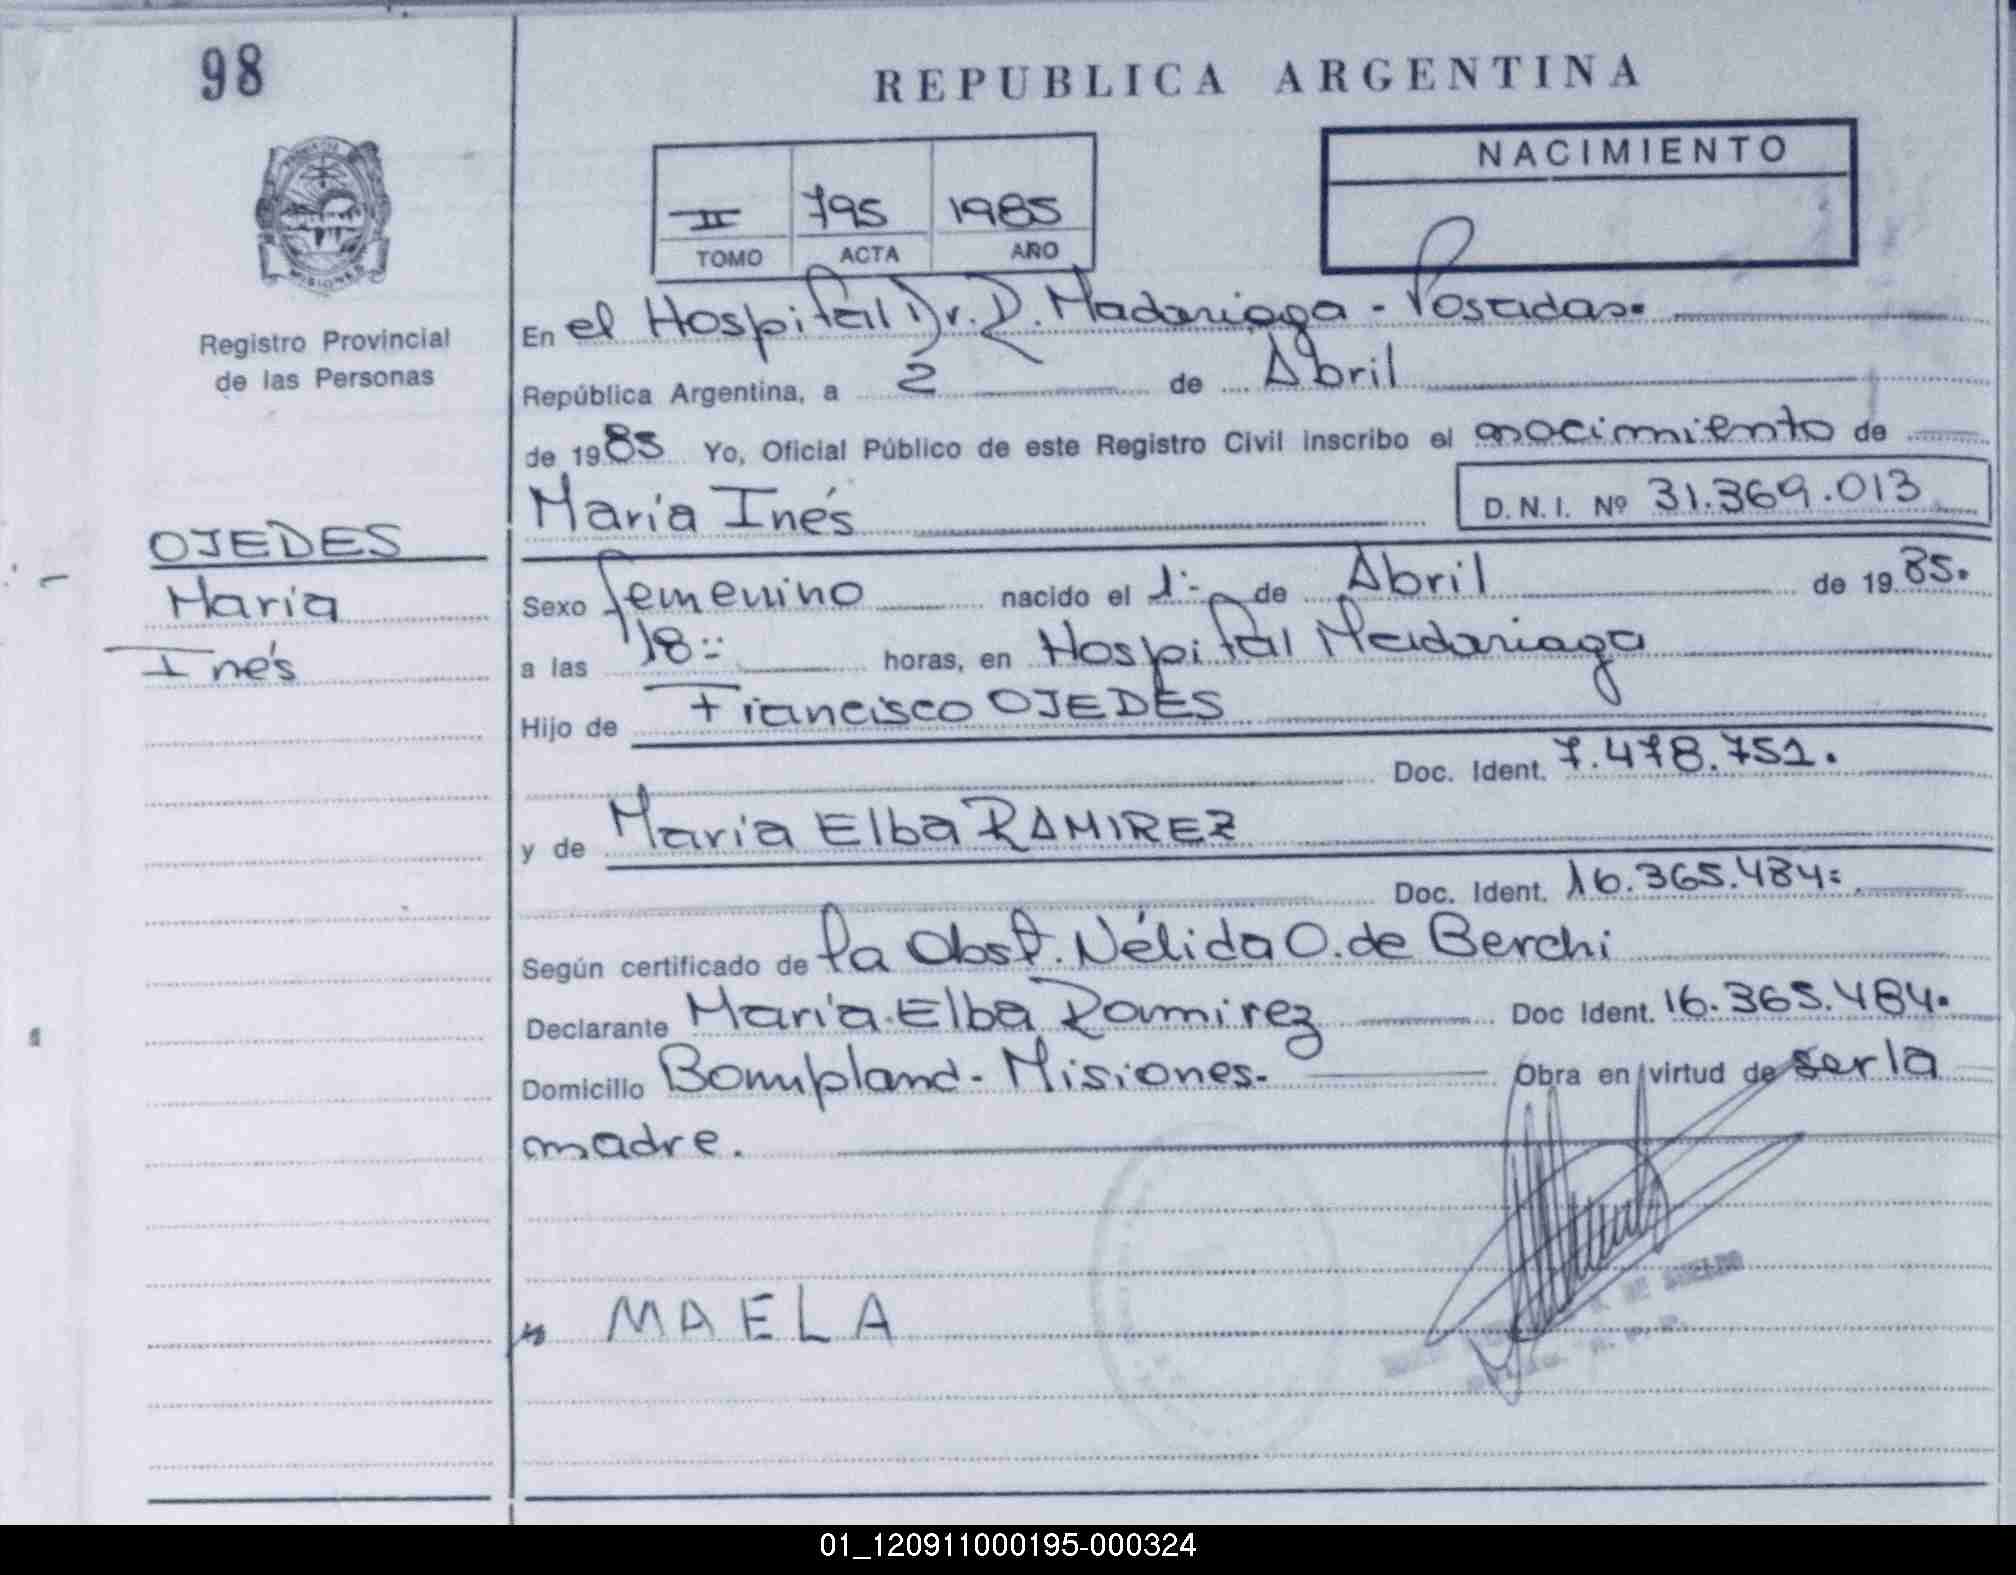 98
REPUBLICA ARGENTINA
NACIMIENTO
II 795 1985
TOMO ACTA AÑO
MISIONES
Registro Provincial
de las Personas
En el Hospital Dr. R. Madariaga - Posadas.
República Argentina, a 2 de Abril
de 1985 Yo, Oficial Público de este Registro Civil inscribo el nacimiento de
María Inés D. N. I. Nº 31.369.013
OJEDES
María
Inés
Sexo femenino nacido el 1º de Abril de 1985.
a las 18 horas, en Hospital Madariaga
Hijo de Francisco OJEDES
Doc. Ident. 7.478.751.
y de María Elba RAMIREZ
Doc. Ident. 16.365.484
Según certificado de la Obst. Nélida O. de Berchi
Declarante María Elba Ramirez Doc Ident. 16.365.484.
Domicilio Bompland - Misiones. Obra en virtud de ser la
madre.
MAELA
01_120911000195-000324